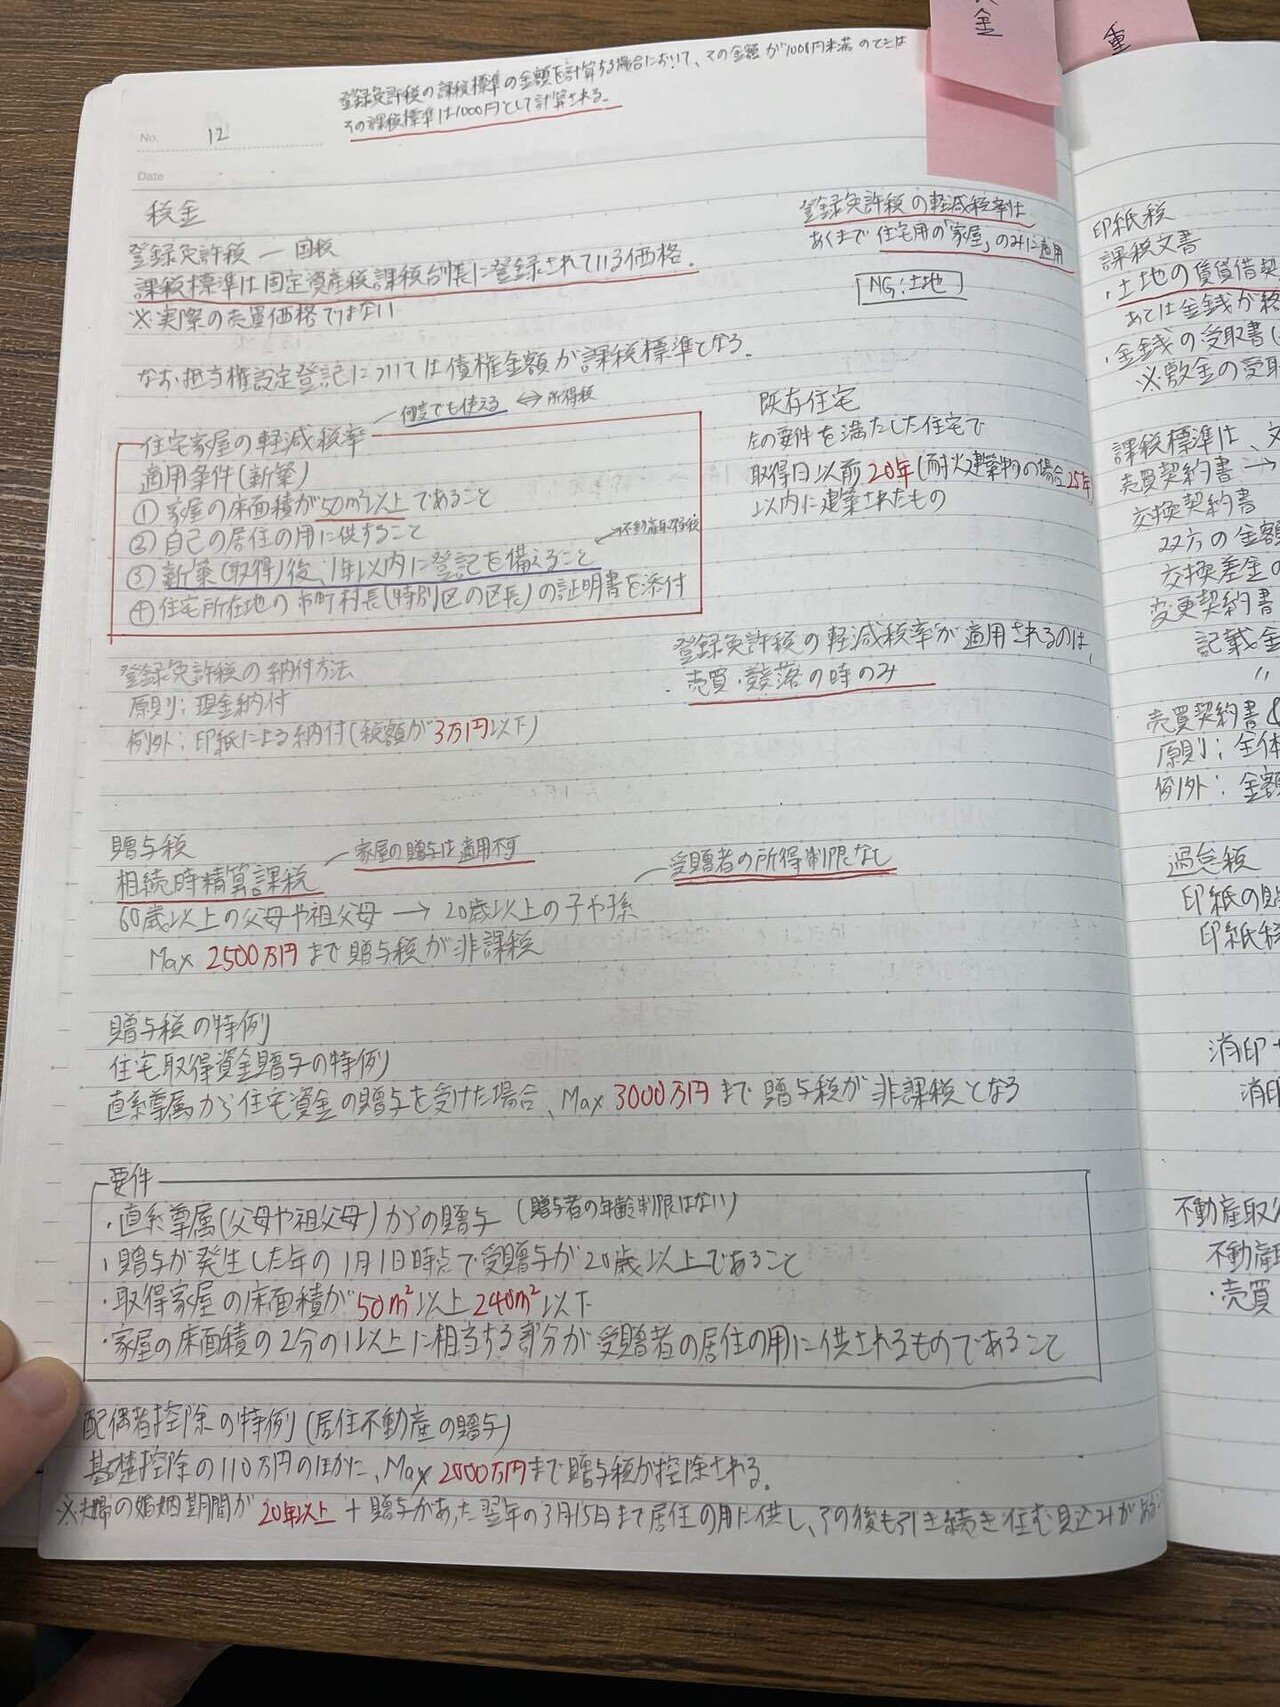 登録免許税の課税標準の金額を計算する場合において、その金額が1000円未満のときは
その課税標準は1000円として計算される。
No. 12
Date
税金
登録免許税 ― 国税
課税標準は固定資産税課税台帳に登録されている価格。
※実際の売買価格ではない
なお、抵当権設定登記については債権金額が課税標準となる。
登録免許税の軽減税率は
あくまで住宅用の「家屋」のみに適用
NG:土地
何度でも使える ⇔ 所得税
住宅家屋の軽減税率
適用条件(新築)
① 家屋の床面積が50㎡以上であること
② 自己の居住の用に供すること
不動産取得税
③ 新築(取得)後、1年以内に登記を備えること
④ 住宅所在地の市町村長(特別区の区長)の証明書を添付
既存住宅
左の要件を満たした住宅で
取得日以前20年(耐火建築物の場合25年)
以内に建築されたもの
登録免許税の軽減税率が適用されるのは、
売買・競落の時のみ
登録免許税の納付方法
原則:現金納付
例外:印紙による納付(税額が3万円以下)
贈与税
家屋の贈与は適用不可
相続時精算課税
受贈者の所得制限なし
60歳以上の父母や祖父母 → 20歳以上の子や孫
Max 2500万円まで贈与税が非課税
贈与税の特例
住宅取得資金贈与の特例
直系尊属から住宅資金の贈与を受けた場合、Max 3000万円まで贈与税が非課税となる
要件
・直系尊属(父母や祖父母)からの贈与 (贈与者の年齢制限はない)
・贈与が発生した年の1月1日時点で受贈与が20歳以上であること
・取得家屋の床面積が50m²以上240m²以下
・家屋の床面積の2分の1以上に相当する部分が受贈者の居住の用に供されるものであること
配偶者控除の特例(居住不動産の贈与)
基礎控除の110万円のほかに、Max 2000万円まで贈与税が控除される。
※夫婦の婚姻期間が20年以上 + 贈与があった翌年の3月15日まで居住の用に供し、その後も引き続き住む見込みがある
金
重
印紙税
課税文書
・土地の賃貸借契
あては金銭が
・金銭の受取書(
※敷金の受取
課税標準は、文
売買契約書 →
交換契約書
双方の金額
交換差金の
変更契約書
記載金
〃
売買契約書&
原則:全体
例外:金額
過怠税
印紙の貼
印紙税
消印
消印
不動産取
不動産取
・売買